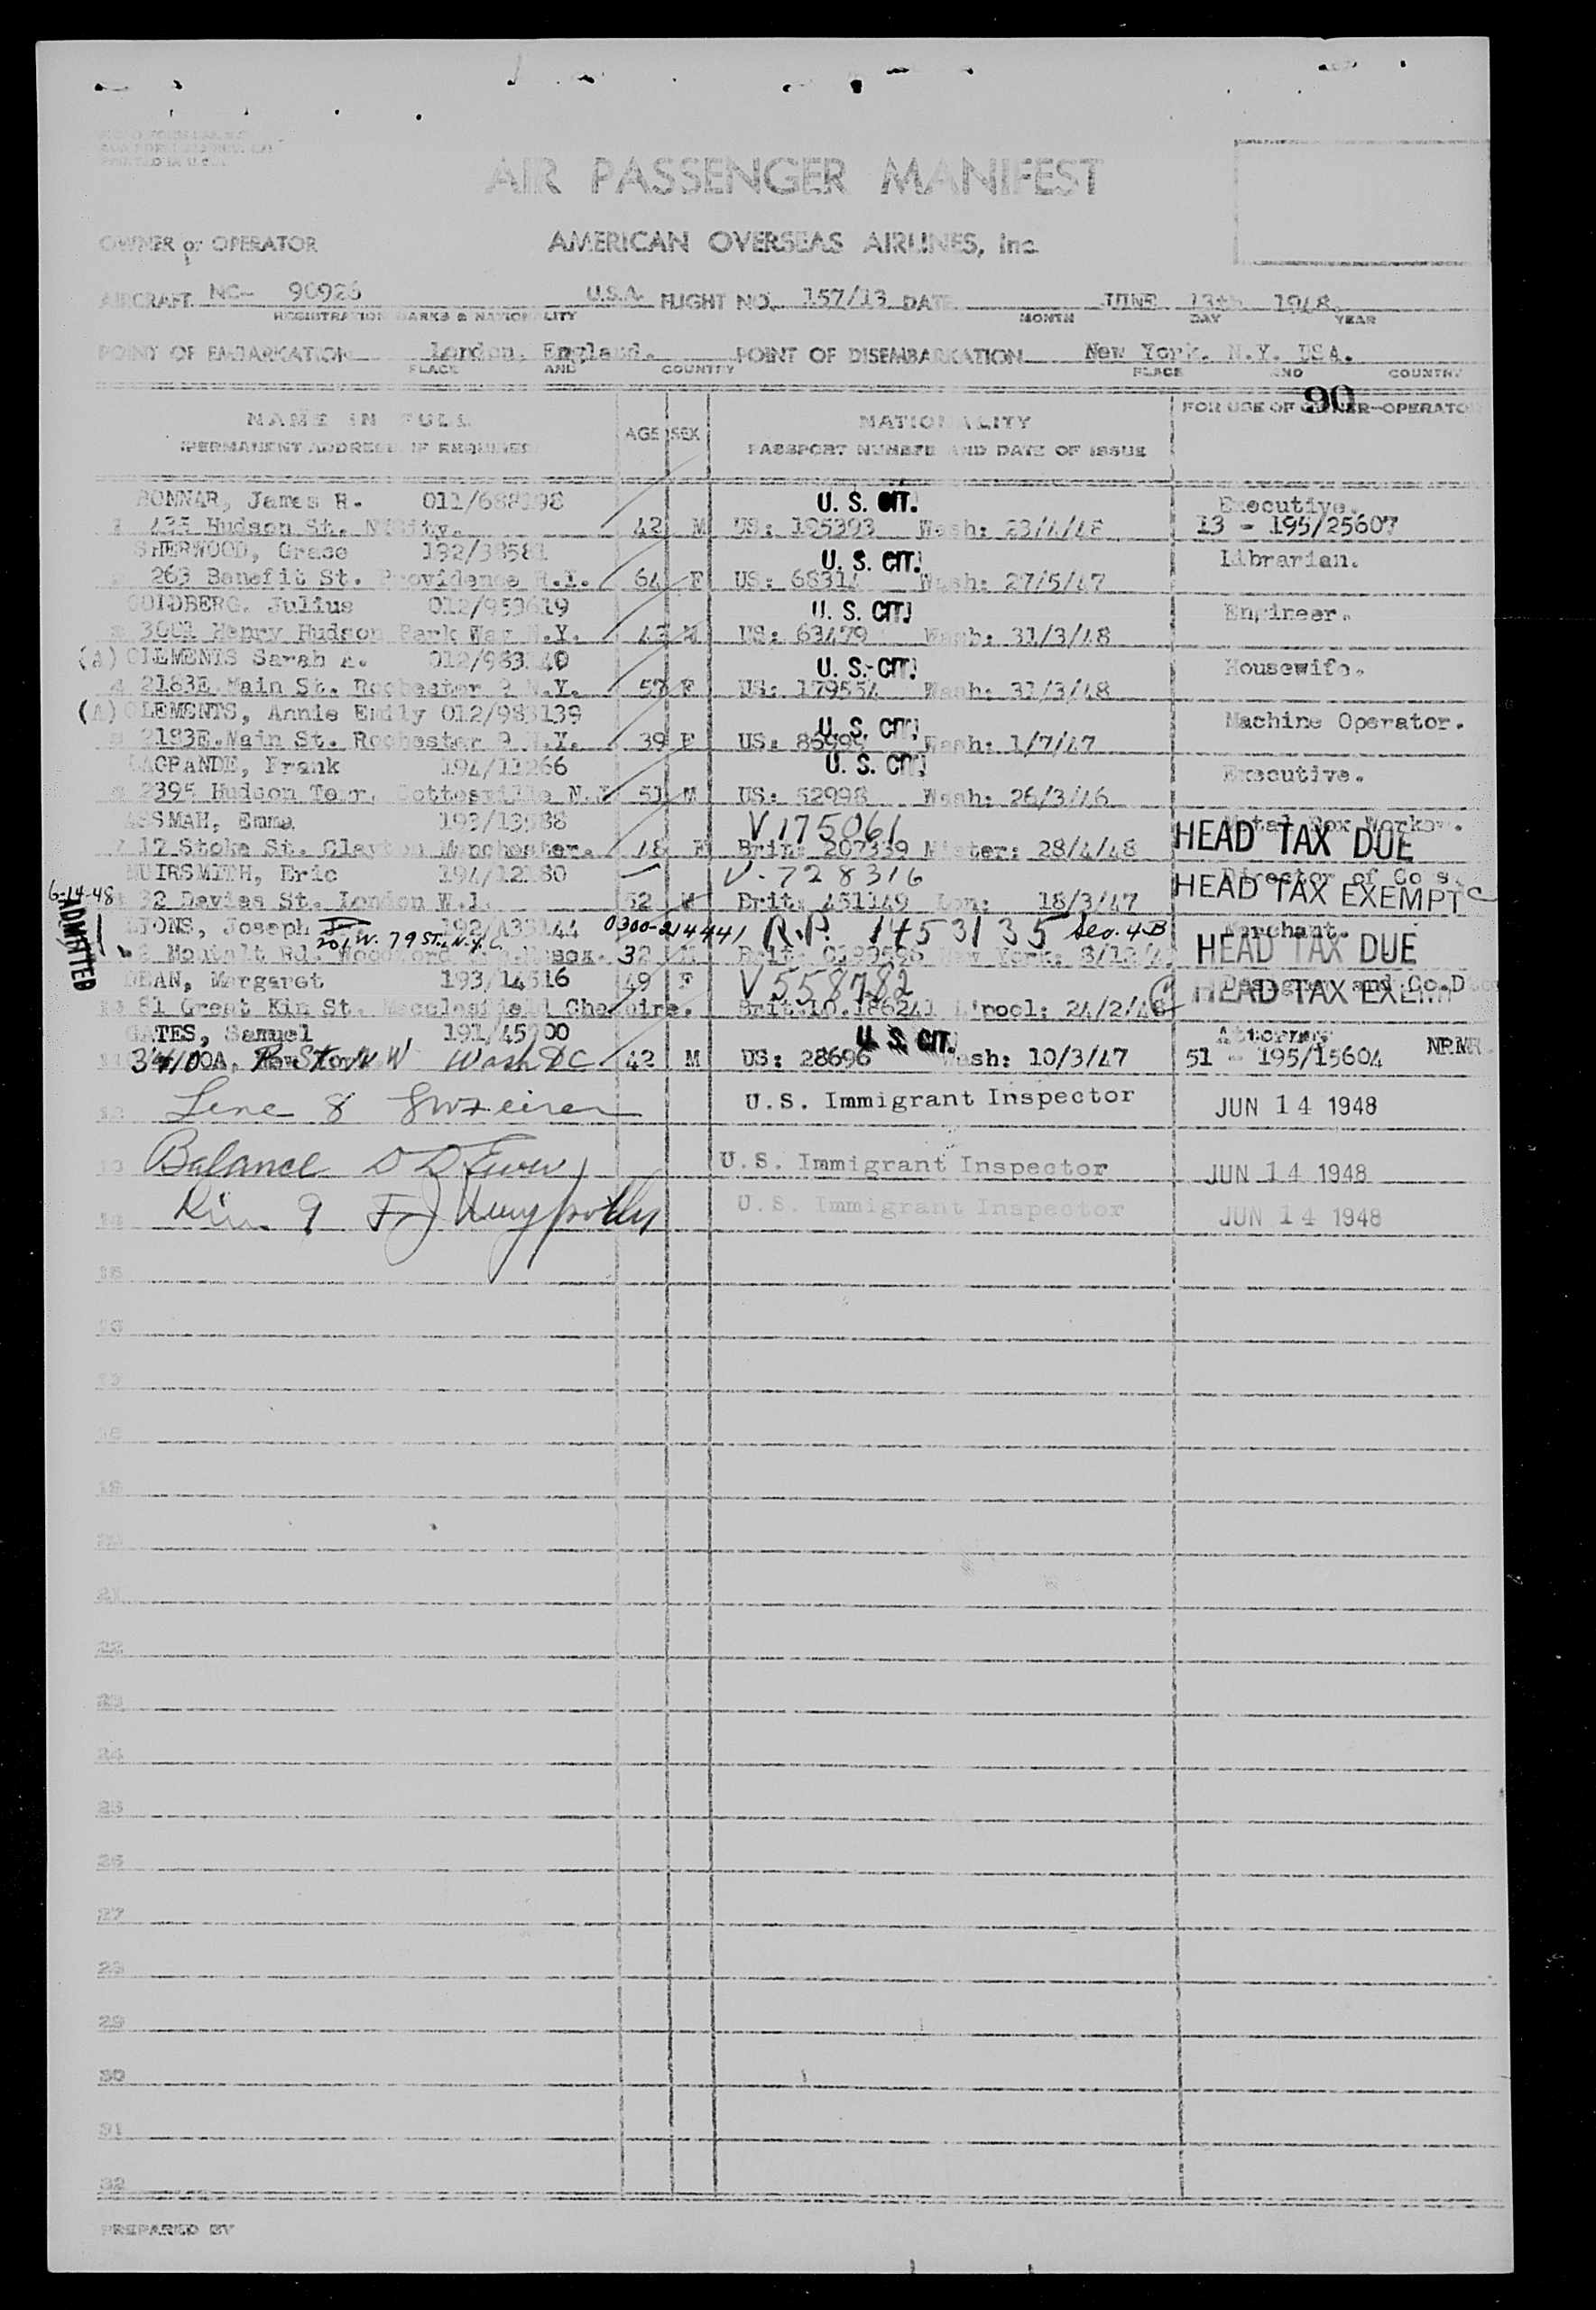 AIR PASSENGER MANIFEST
OWNER or OPERATOR AMERICAN OVERSEAS AIRLINES, Inc.
AIRCRAFT NC- 90926 U.S.A. FLIGHT NO. 157/13 DATE JUNE 13th 1948.
REGISTRATION MARKS & NATIONALITY MONTH DAY YEAR
POINT OF EMBARKATION London, England. POINT OF DISEMBARKATION New York, N.Y. USA.
PLACE AND COUNTRY PLACE AND COUNTRY
90
NAME IN FULL AGE SEX NATIONALITY FOR USE OF OWNER-OPERATOR
(PERMANENT ADDRESS IF REQUIRED) PASSPORT NUMBER AND DATE OF ISSUE
BONNAR, James R. U. S. CIT. Executive.
435 Hudson St. 42 M US: 195393 Wash: 23/4/48 13 - 195/25607
SHERWOOD, Grace 192/38581 U. S. CIT. Librarian.
2 263 Benefit St. Providence R.I. 64 F US: 68314 Wash: 27/5/47
GOLDBERG, Julius 012/953619 U. S. CIT. Engineer.
3 3001 Henry Hudson Park Way N.Y. 43 M US: 63479 Wash: 31/3/48
(A) CLEMENTS Sarah A. 012/983140 U. S. CIT. Housewife.
4 2183E. Main St. Rochester 9 N.Y. 57 F US: 179554 Wash: 31/3/48
(A) CLEMENTS, Annie Emily 012/983139 U. S. CIT. Machine Operator.
5 2183E. Main St. Rochester 9 N.Y. 39 F US: 86999 Wash: 1/7/47
LAGRANDE, Frank 194/11266 U. S. CIT. Executive.
6 2395 Hudson Terr. N.J. 51 M US: 52998 Wash: 26/3/46
Emma 193/13588 V 175061 Metal Box Worker. HEAD TAX DUE
7 12 Stoke St. Clayton Manchester. 48 F Brit: 207339 M'ster: 28/4/48
MUIRSMITH, Eric 194/12180 V-728316 Director of Co s. HEAD TAX EXEMPT C
6-14-48 32 Davies St. London W.1. 52 M Brit: 451149 Lon: 18/3/47
ADMITTED
LYONS, Joseph 0300-214441 R.P. 1453135 Sec. 4-B Merchant. HEAD TAX DUE
201 W. 79 St., N.Y.C.
Rd. Woodford 32 M New York:
DEAN, Margaret 193/14516 49 F V 558782 HEAD TAX EXEMPT
10 81 Great Kin St. Macclesfield Cheshire. Brit: L'pool: 24/2/48
GATES, Samuel 191/45900 U. S. CIT. Attorney.
Wash DC 42 M US: 28696 Wash: 10/3/47 51 - 195/15604
Line 8 U.S. Immigrant Inspector JUN 14 1948
13 Balance U.S. Immigrant Inspector JUN 14 1948
14 9 U.S. Immigrant Inspector JUN 14 1948
15
16
17
18
19
20
21
22
23
24
25
26
27
28
29
30
31
32
PREPARED BY